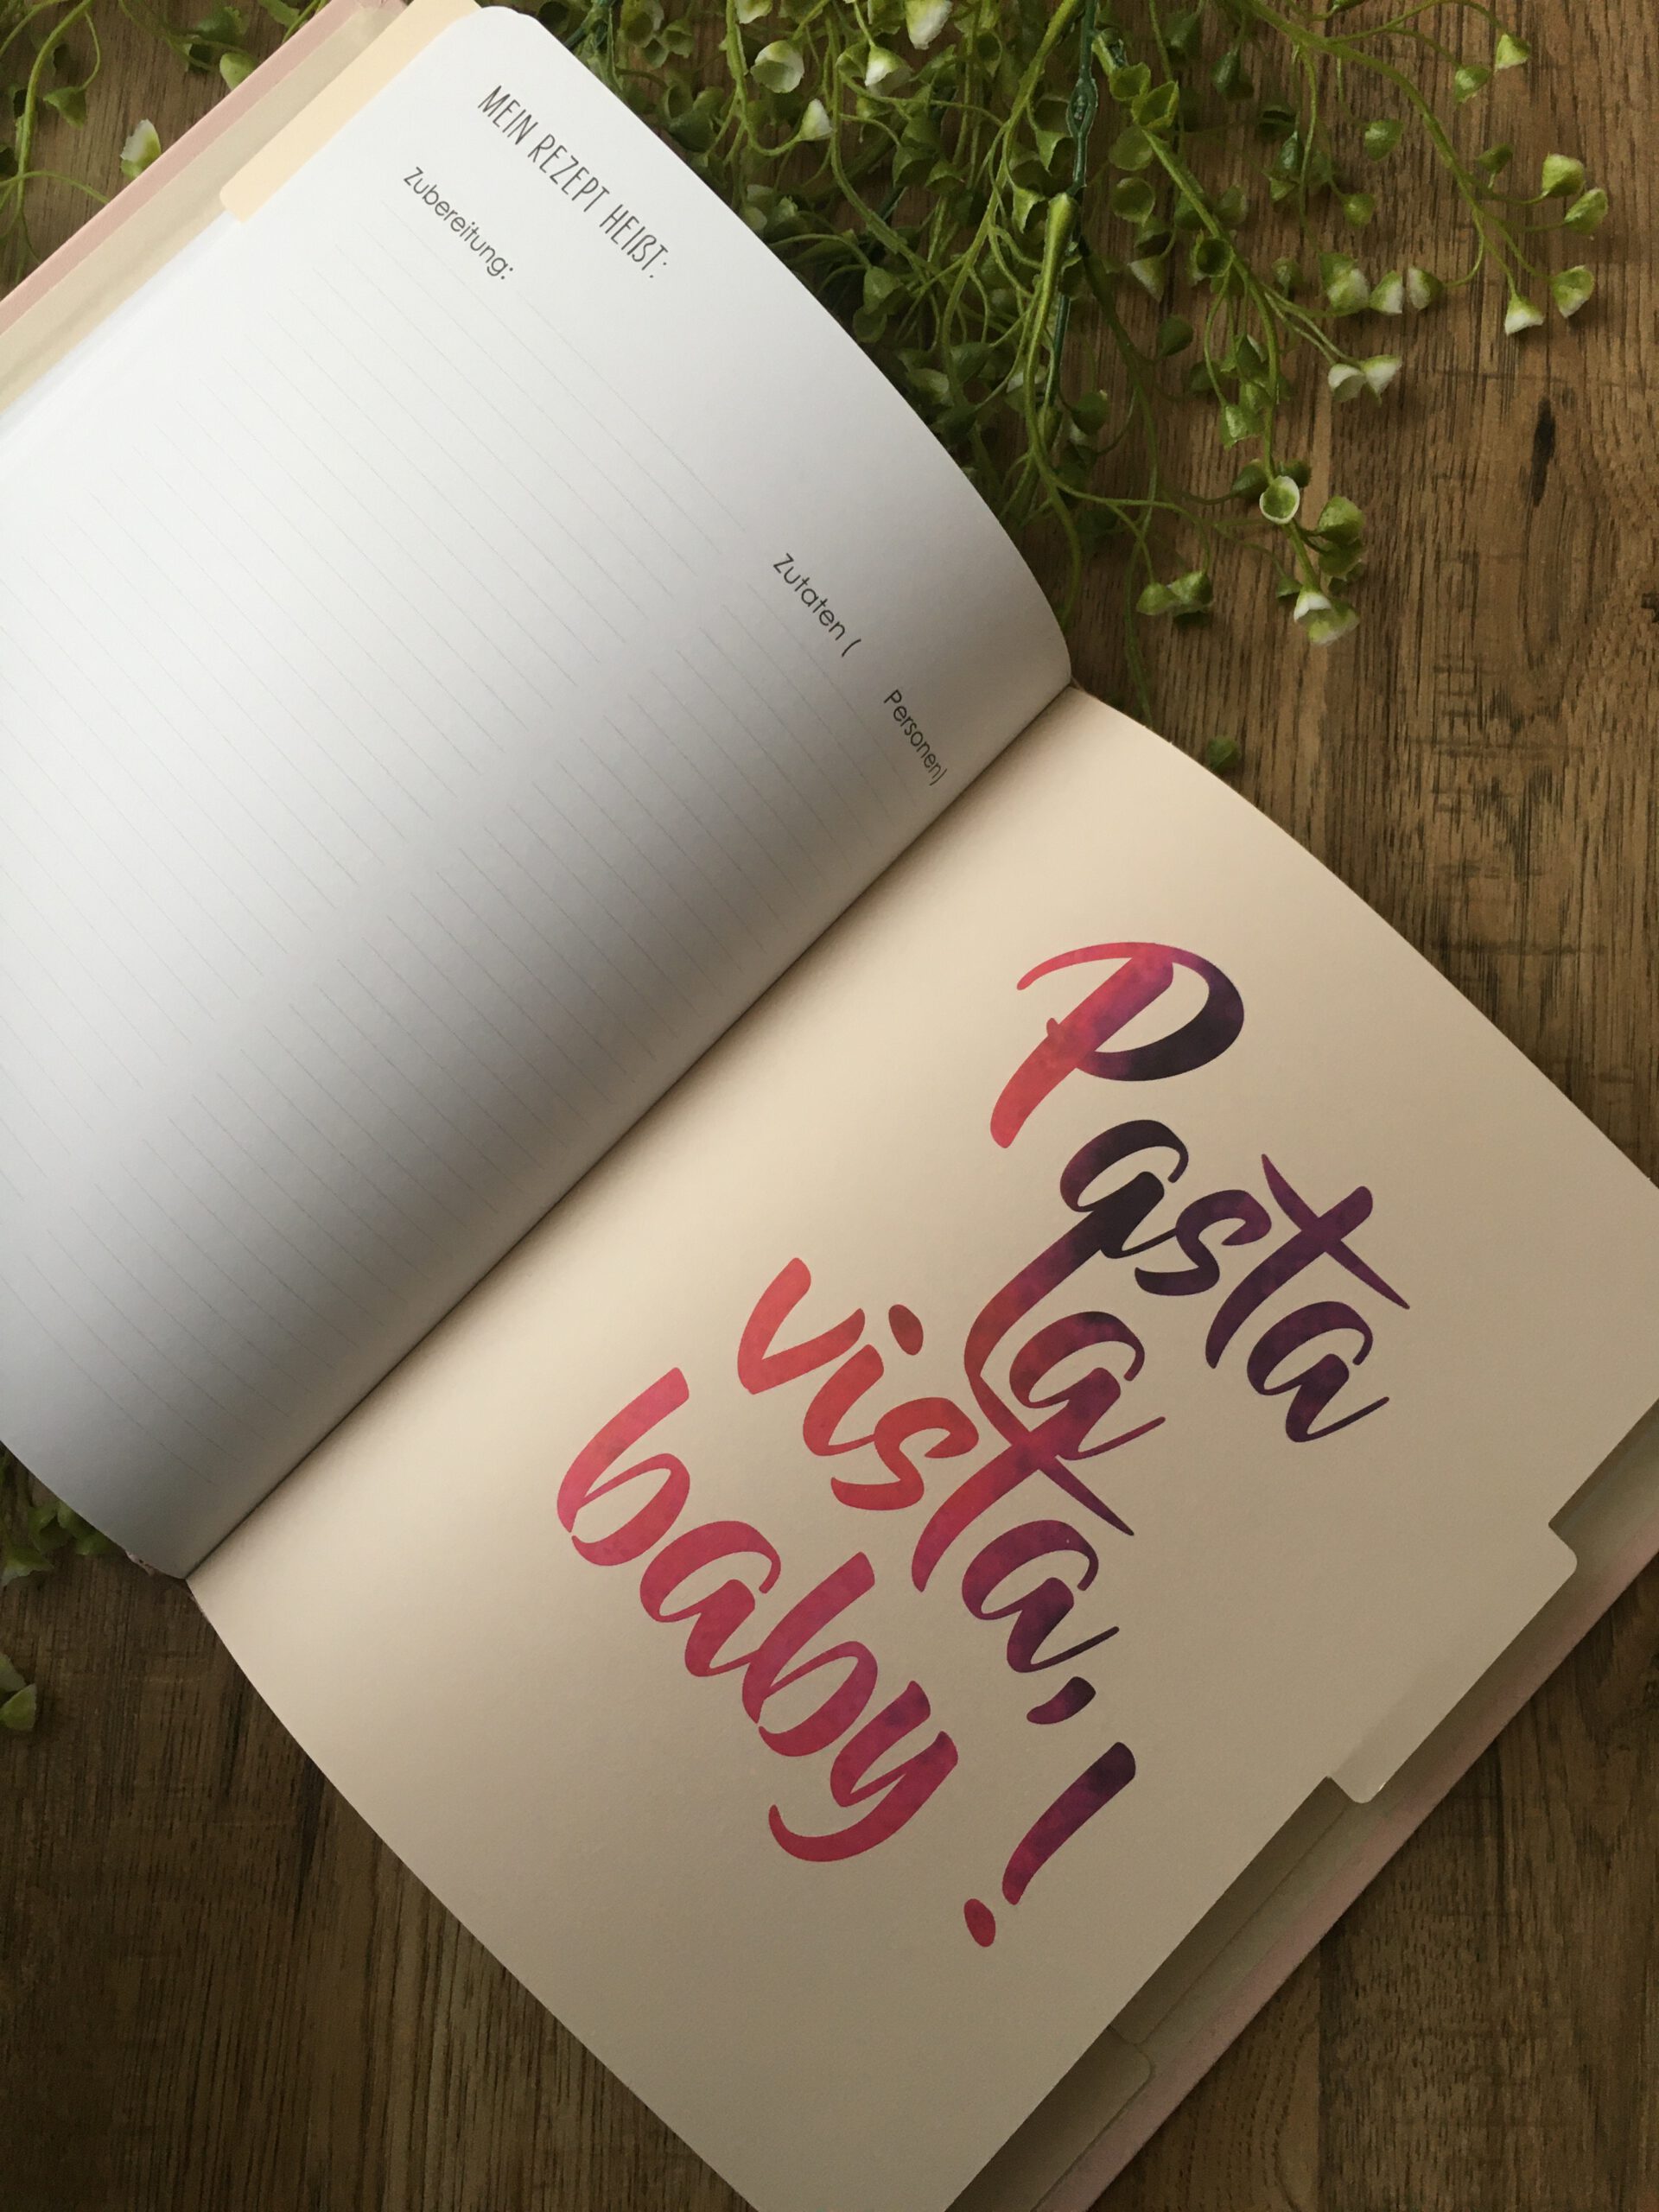 MEIN REZEPT HEIẞT:
Zubereitung:
Zutaten (      Personen)
Pasta
la
vista,
baby!